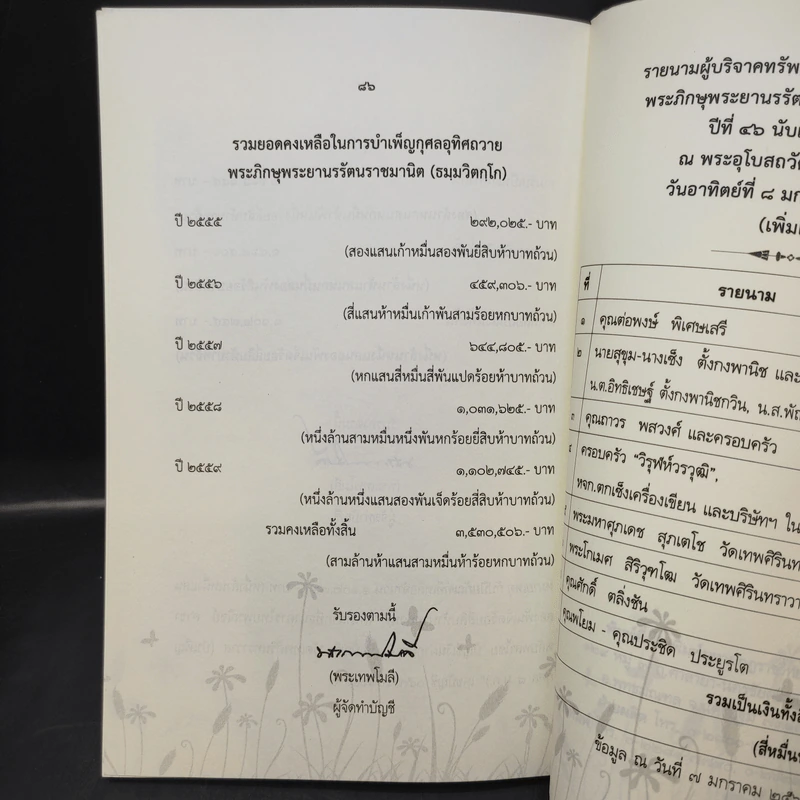 ๘๖
รวมยอดคงเหลือในการบำเพ็ญกุศลอุทิศถวาย
พระภิกษุพระยานรรัตนราชมานิต (ธมฺมวิตกฺโก)
ปี ๒๕๕๕ ๒๙๒,๐๒๕.- บาท
(สองแสนเก้าหมื่นสองพันยี่สิบห้าบาทถ้วน)
ปี ๒๕๕๖ ๔๕๙,๓๐๖.- บาท
(สี่แสนห้าหมื่นเก้าพันสามร้อยหกบาทถ้วน)
ปี ๒๕๕๗ ๖๔๔,๘๐๕.- บาท
(หกแสนสี่หมื่นสี่พันแปดร้อยห้าบาทถ้วน)
ปี ๒๕๕๘ ๑,๐๓๑,๖๒๕.- บาท
(หนึ่งล้านสามหมื่นหนึ่งพันหกร้อยยี่สิบห้าบาทถ้วน)
ปี ๒๕๕๙ ๑,๑๐๒,๗๔๕.- บาท
(หนึ่งล้านหนึ่งแสนสองพันเจ็ดร้อยสี่สิบห้าบาทถ้วน)
รวมคงเหลือทั้งสิ้น ๓,๕๓๐,๕๐๖.- บาท
(สามล้านห้าแสนสามหมื่นห้าร้อยหกบาทถ้วน)
รับรองตามนี้
(พระเทพโมลี)
ผู้จัดทำบัญชี
รายนามผู้บริจาคทรัพ
พระภิกษุพระยานรรัต
ปีที่ ๔๖ นับ
ณ พระอุโบสถวัด
วันอาทิตย์ที่ ๘ มก
(เพิ่ม
ที่ รายนาม
๑ คุณต่อพงษ์ พิเศษเสรี
๒ นายสุขุม-นางเซ็ง ตั้งกงพานิช และ
น.ต.อิทธิเชษฐ์ ตั้งกงพานิชกวิน, น.ส.พัถ
๓ คุณถาวร พสวงศ์ และครอบครัว
ครอบครัว "วิรุฬห์วรวุฒิ",
หจก.ตกเซ็งเครื่องเขียน และบริษัทฯ ใน
พระมหาศุภเดช สุภเตโช วัดเทพศิรินท
พระโกเมศ สิริวุฑโฒ วัดเทพศิรินทราวา
คุณศักดิ์ ตลิ่งชัน
คุณพโยม - คุณประชิด ประยูรโต
รวมเป็นเงินทั้งสิ
(สี่หมื่น
ข้อมูล ณ วันที่ ๗ มกราคม ๒๕